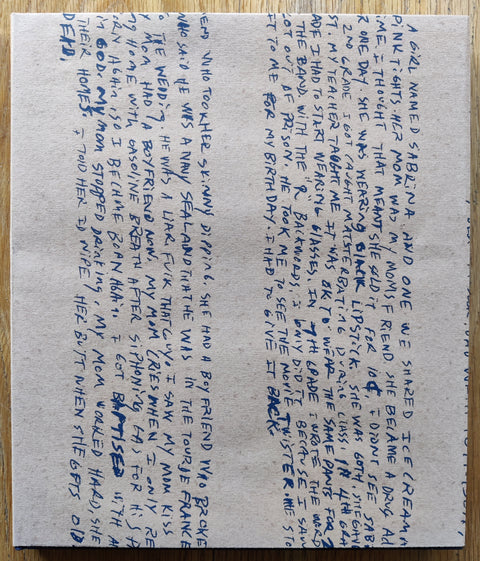 A GIRL NAMED SABRINA AND ONE WE SHARED ICE CREAM A
PINK TIGHTS. HER MOM WAS MY MOMS FRIEND SHE BECAME A DRUG AD
IME. I THOUGHT THAT MEANT SHE SOLD IT FOR 10¢ I DIDNT SEE SAB
R ONE DAY. SHE WAS WEARING BLACK LIPSTICK. SHE WAS GOTH. SHE
2ND GRADE I GOT CAUGHT MASTERBATING DURING CLASS IN 4TH GRA
ST. MY TEACHER TAUGHT ME IT WAS OK TO WEAR THE SAME PANTS FOR 2
ADE I HAD TO START WEARING GLASSES. IN 7TH GRADE I WROTE THE WORD
THE BAND, WITH THE "R" BACKWORDS. I ONLY DID IT BECAUSE I SAW
GOT OUT OF PRISON. HE TOOK ME TO SEE THE MOVIE TWISTER. HE STO
FT TO ME FOR MY BIRTHDAY. I HAD TO GIVE IT BACK.
IEND WHO TOOK HER SKINNY DIPPING. SHE HAD A BOYFRIEND WHO BROKE
WHO SAID HE WAS A NAVY SEAL AND THAT HE WAS IN THE TOUR DE FRANCE
O THE WEDDING. HE WAS A LIAR. FUCK THAT GUY. I SAW MY MOM KISS
Y MOM HAD A BOYFRIEND NOW. MY MOM CRIED WHEN I ONLY RE
MY HOME WITH GASOLINE BREATH AFTER SIPHONING GAS FOR HIS
ORN AGAIN SO I BECAME BORN AGAIN. I GOT BAPTISED WITH A
M GOD. MY MOM STOPPED DRINKING. MY MOM WORKED HARD, SHE
THEIR HOMES. I TOLD HER ID WIPE HER BUTT WHEN SHE GETS OLD
DEAD.